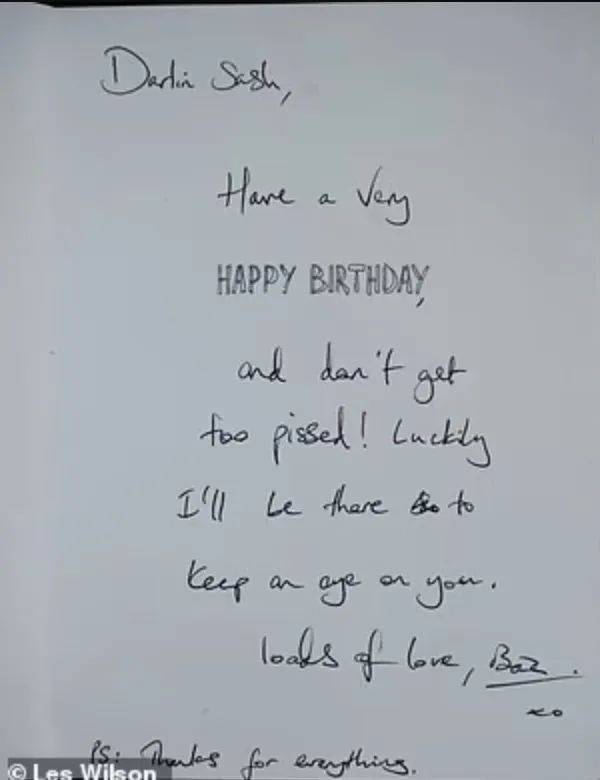 Darlin Sash,
Have a Very
HAPPY BIRTHDAY,
and don't get
too pissed! Luckily
I'll be there to
keep an eye on you.
loads of love, Baz.
xo
PS: Thanks for everything.
© Les Wilson